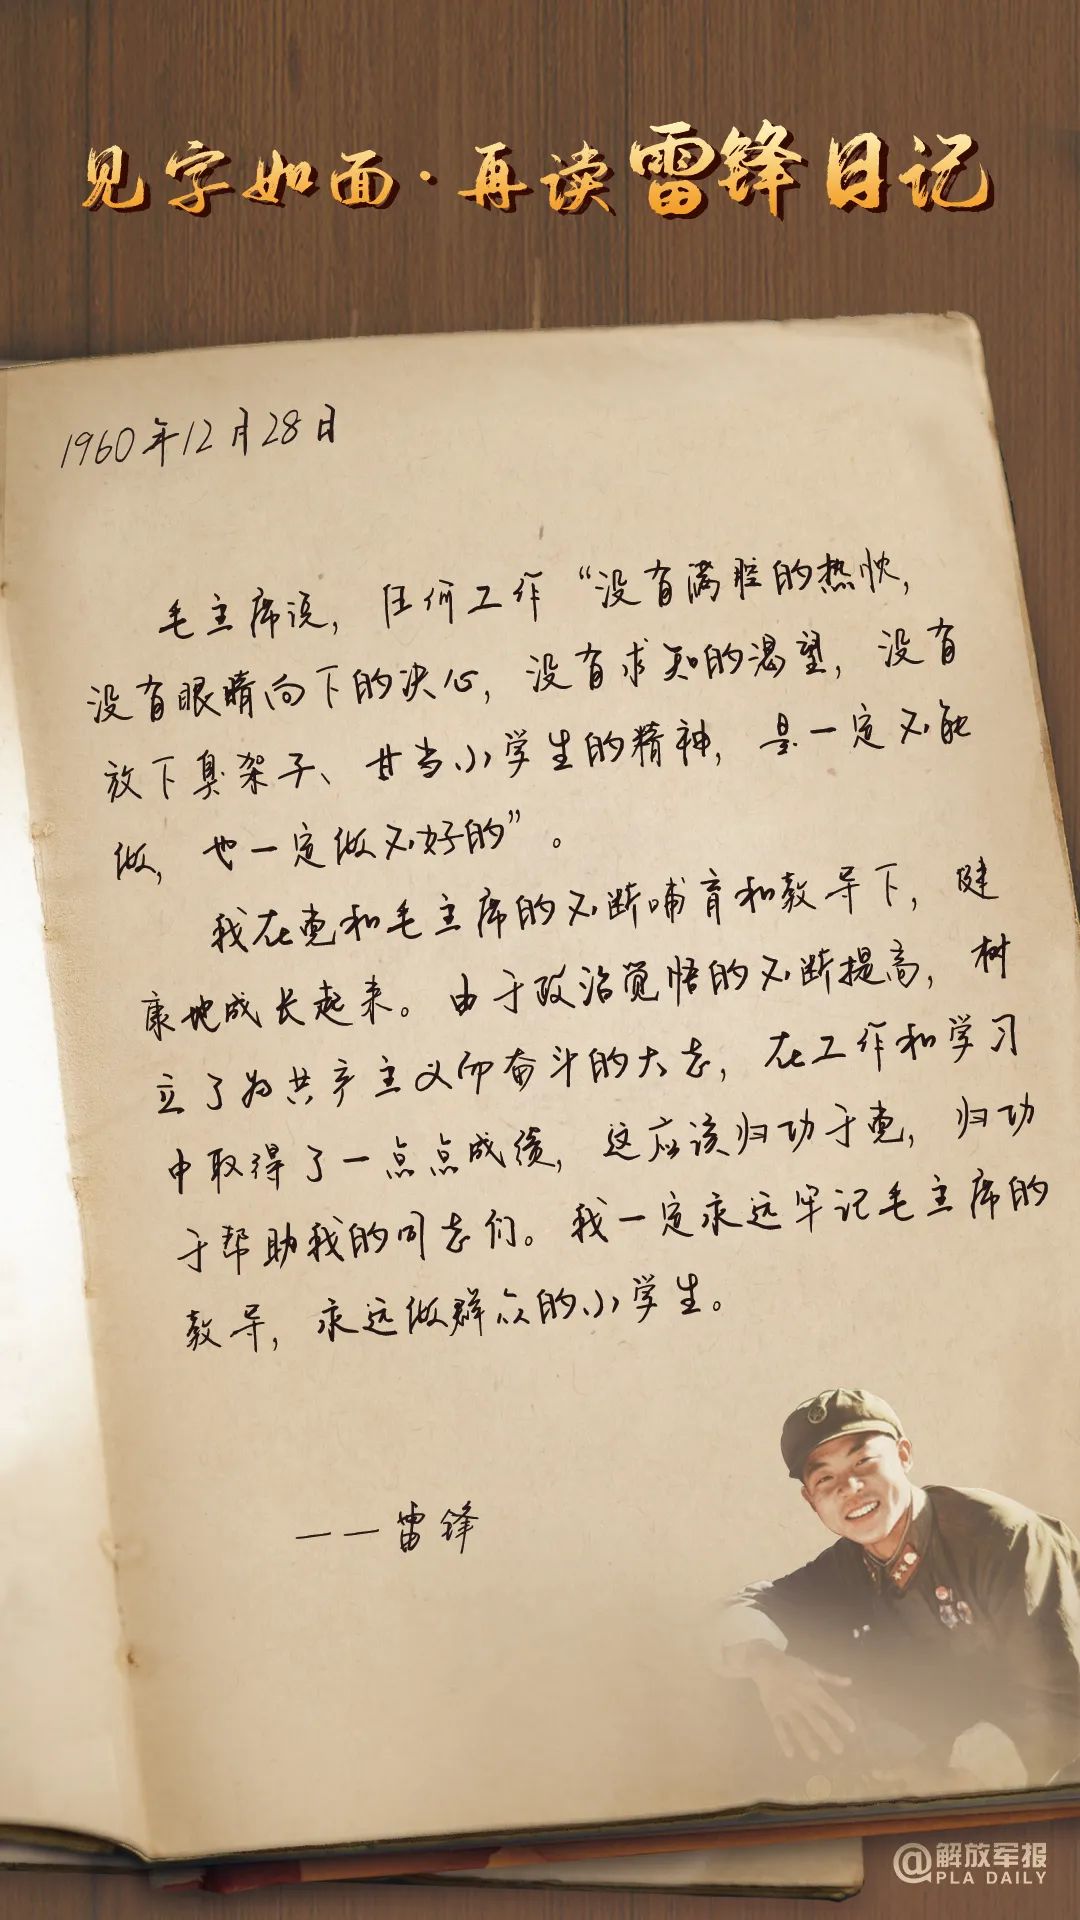 见字如面·再读雷锋日记
1960年12月28日
毛主席说，任何工作“没有满腔的热忱，
没有眼睛向下的决心，没有求知的渴望，没有
放下臭架子、甘当小学生的精神，是一定不能
做，也一定做不好的”。
我在党和毛主席的不断哺育和教导下，健
康地成长起来。由于政治觉悟的不断提高，树
立了为共产主义而奋斗的大志，在工作和学习
中取得了一点点成绩，这应该归功于党，归功
于帮助我的同志们。我一定永远牢记毛主席的
教导，永远做群众的小学生。
——雷锋
@解放军报
PLA DAILY